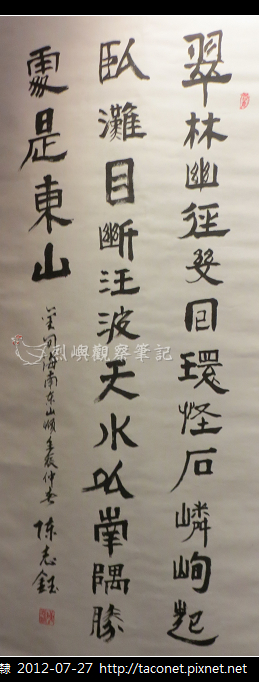 翠林幽徑回環怪石嶙峋起
臥灘目斷汪波天水以南隅勝
處是東山
海南東山頂壬辰仲春 陳志鈺
烈嶼觀察筆記
隸 2012-07-27 http://taconet.pixnet.net